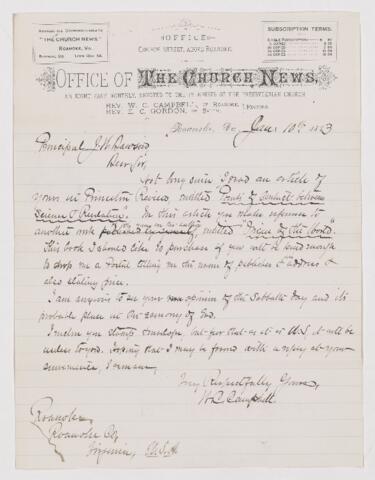 "THE CHURCH NEWS,"
ROANOKE, VA.
OFFICE
CHURCH STREET, ABOVE ROANOKE.
SUBSCRIPTION TERMS.
OFFICE OF THE CHURCH NEWS,
AN EIGHT PAGE MONTHLY, DEVOTED TO THE INTERESTS OF THE PRESBYTERIAN CHURCH
REV. W. C. CAMPBELL, OF ROANOKE,
REV. E. C. GORDON, OF SALEM, EDITORS.
Roanoke, Va, Jan 10th 1883
Principal J. W. Dawson
Dear Sir,
Not long since I read an article of
yours in Princeton Review, entitled "Points of Contact between
Science & Revelation". In this article you make reference to
another work entitled "Origin of the World".
This book I should like to purchase if you will be kind enough
to drop me a Postal telling me the name of publisher & address &
also stating price.
I am anxious to see your opinion of the Sabbath Day and its
probable place in the economy of God.
I enclose you stamp & envelope, but for that as it is U.S. it will be
useless to you. Hoping that I may be favored with a reply at your
convenience, I remain,
Very Respectfully Yours,
W. C. Campbell
Roanoke,
Roanoke Co,
Virginia, U.S.A.